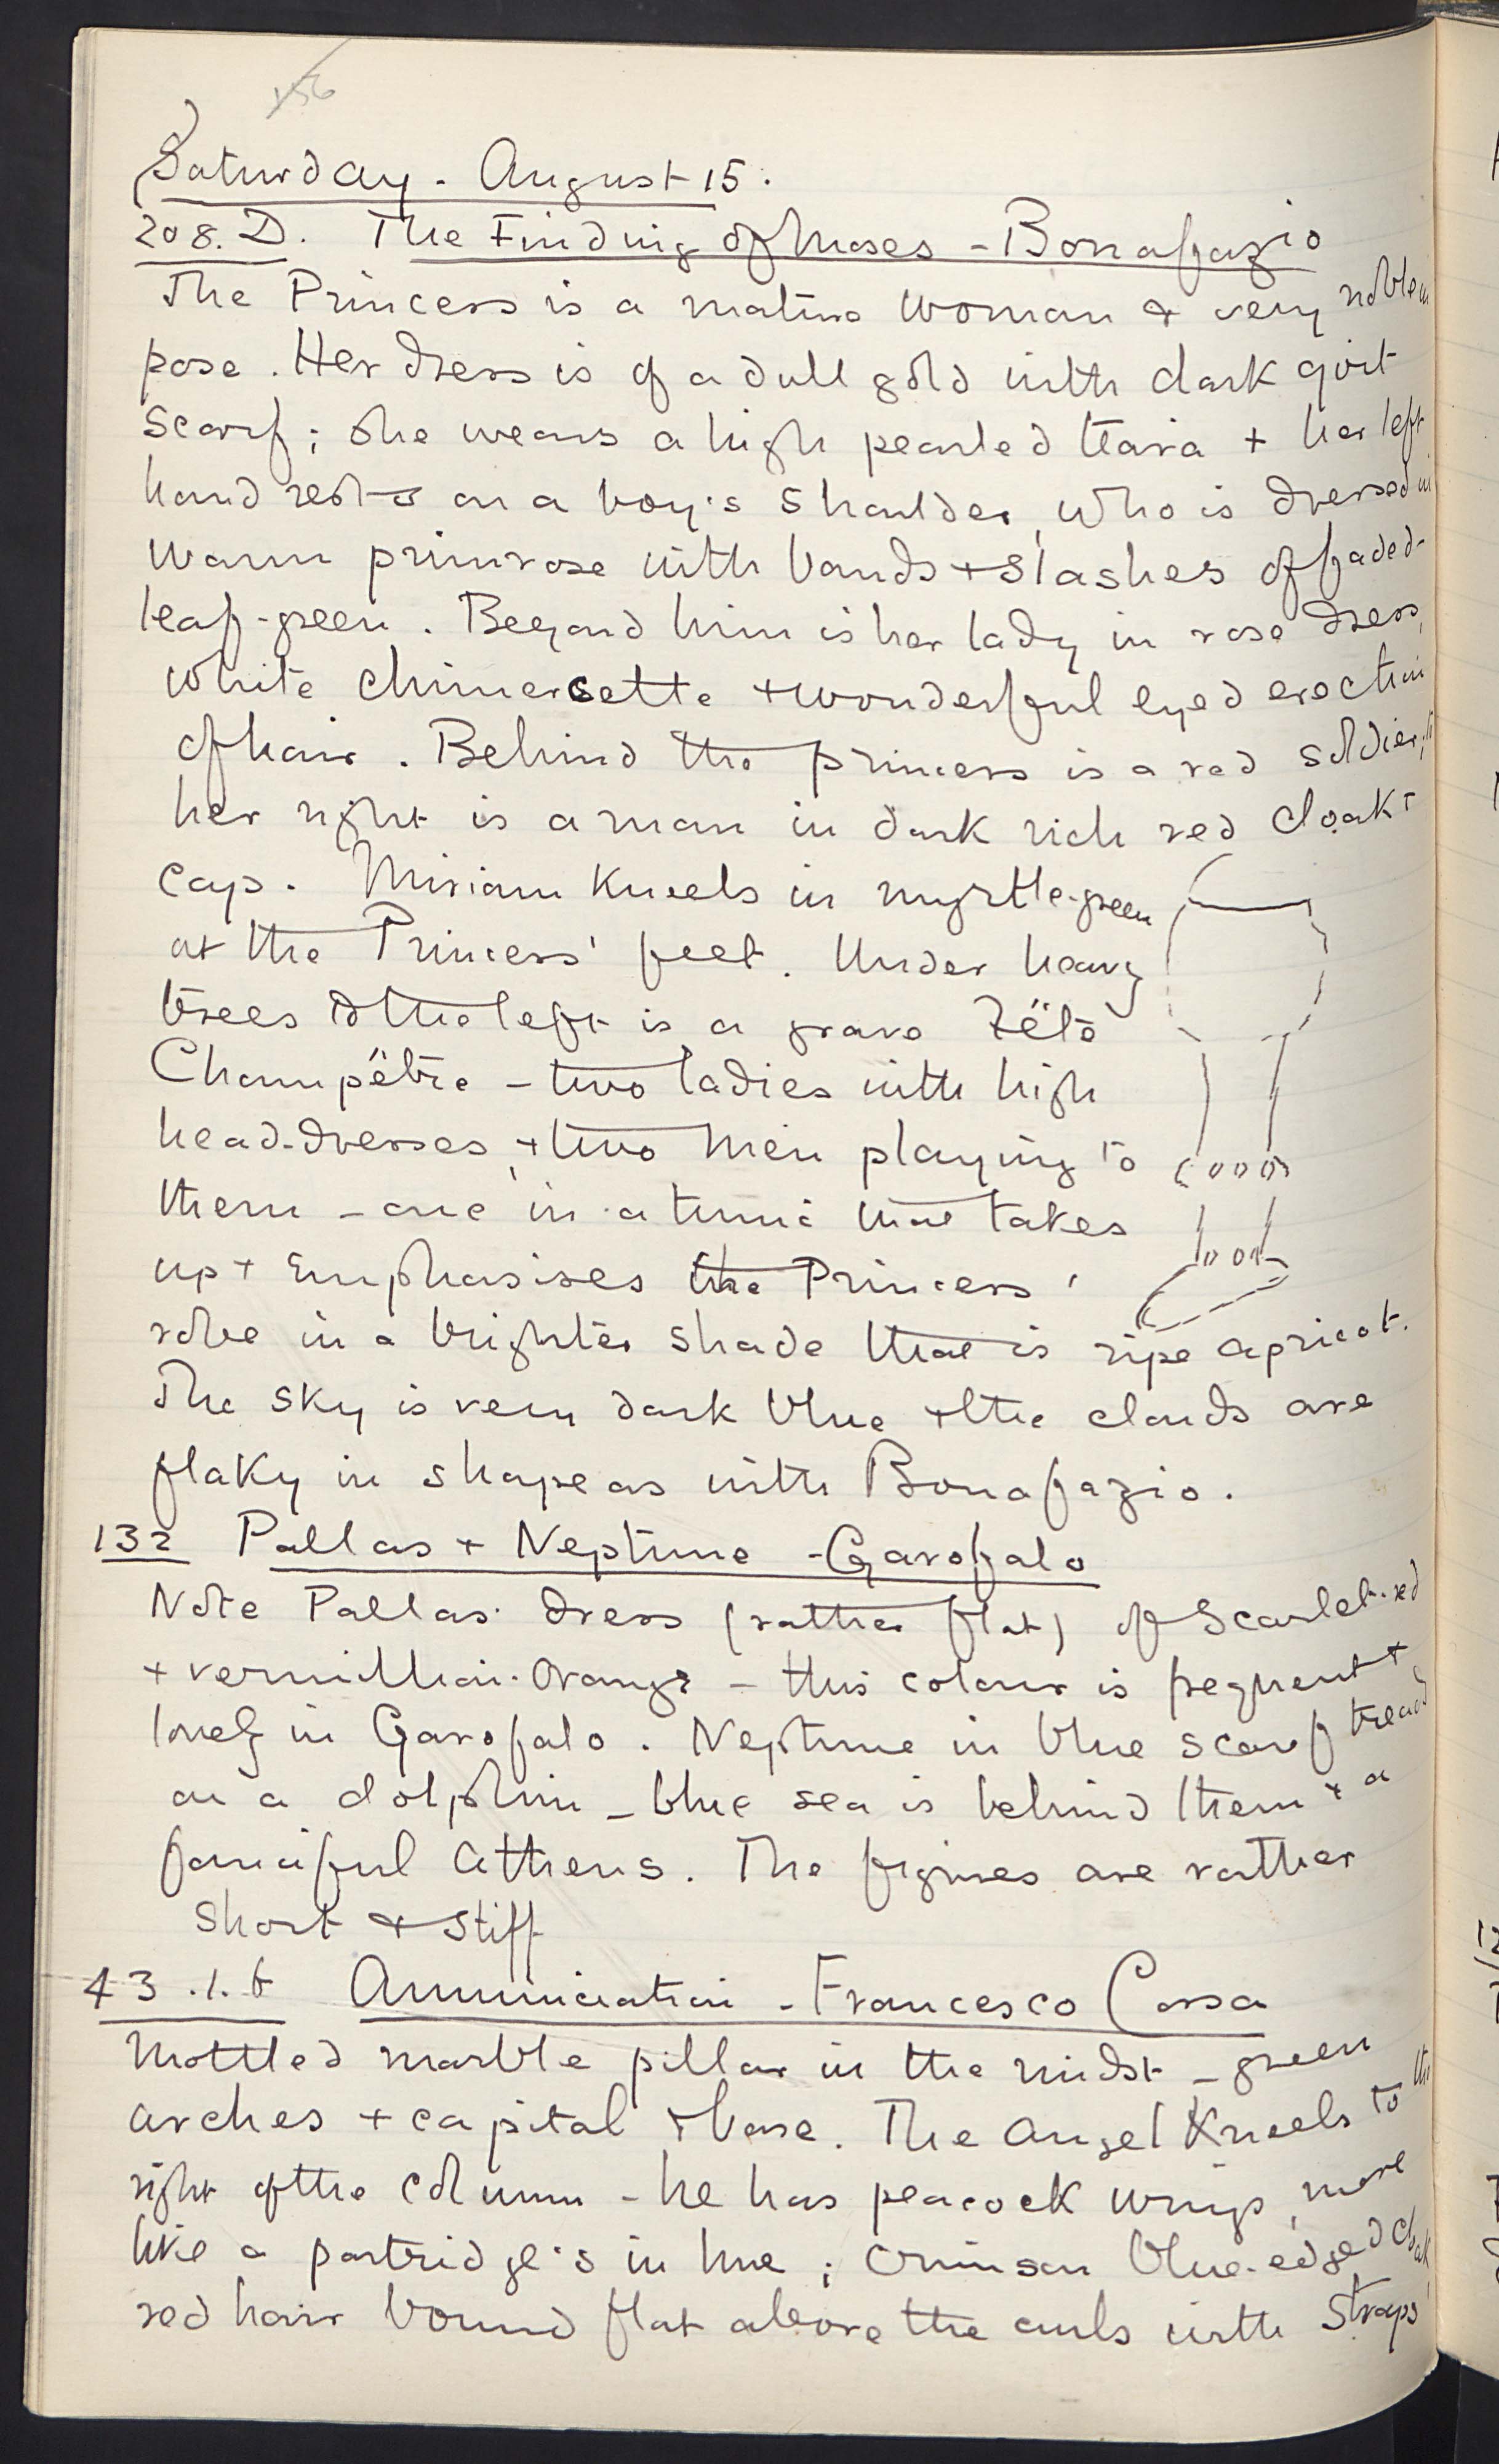 156
Saturday - August 15.
208. D. The Finding of Moses - Bonafazio
The Princess is a mature woman & very noble in
pose. Her dress is of a dull gold with dark girt
scarf; she wears a high pearled tiara + her left
hand rests on a boy's shoulder, who is dressed in
warm primrose with bands + slashes of faded-
leaf-green. Beyond him is her lady in rose dress,
white chimersette + wonderful eyed erection
of hair. Behind the princess is a red soldier; to
her right is a man in dark rich red cloak +
cap. Miriam kneels in myrtle-green
at the Princess' feet. Under heavy
trees to the left is a grave Fëte
Champëtre - two ladies with high
head-dresses, + two men playing to
them - one in a tunic that takes
up + emphasises the Princess'
robe in a brighter shade that is ripe apricot.
The sky is very dark blue + the clouds are
flaky in shape as with Bonafazio.
132 Pallas + Neptune - Garofalo
Note Pallas' dress (rather flat) of scarlet-red
+ vermillion-orange - this colour is frequent +
lovely in Garofalo. Neptune in blue scarf treads
on a dolphin - blue sea is behind them + a
fanciful Athens. The figures are rather
short & stiff
43.1.b Annunciation - Francesco Cossa
Mottled marble pillar in the midst - green
arches + capital + base. The angel kneels to the
right of the column - he has peacock wings, more
like a partridge's in hue; crimson blue-edged cloak,
red hair bound flat above the curls with straps